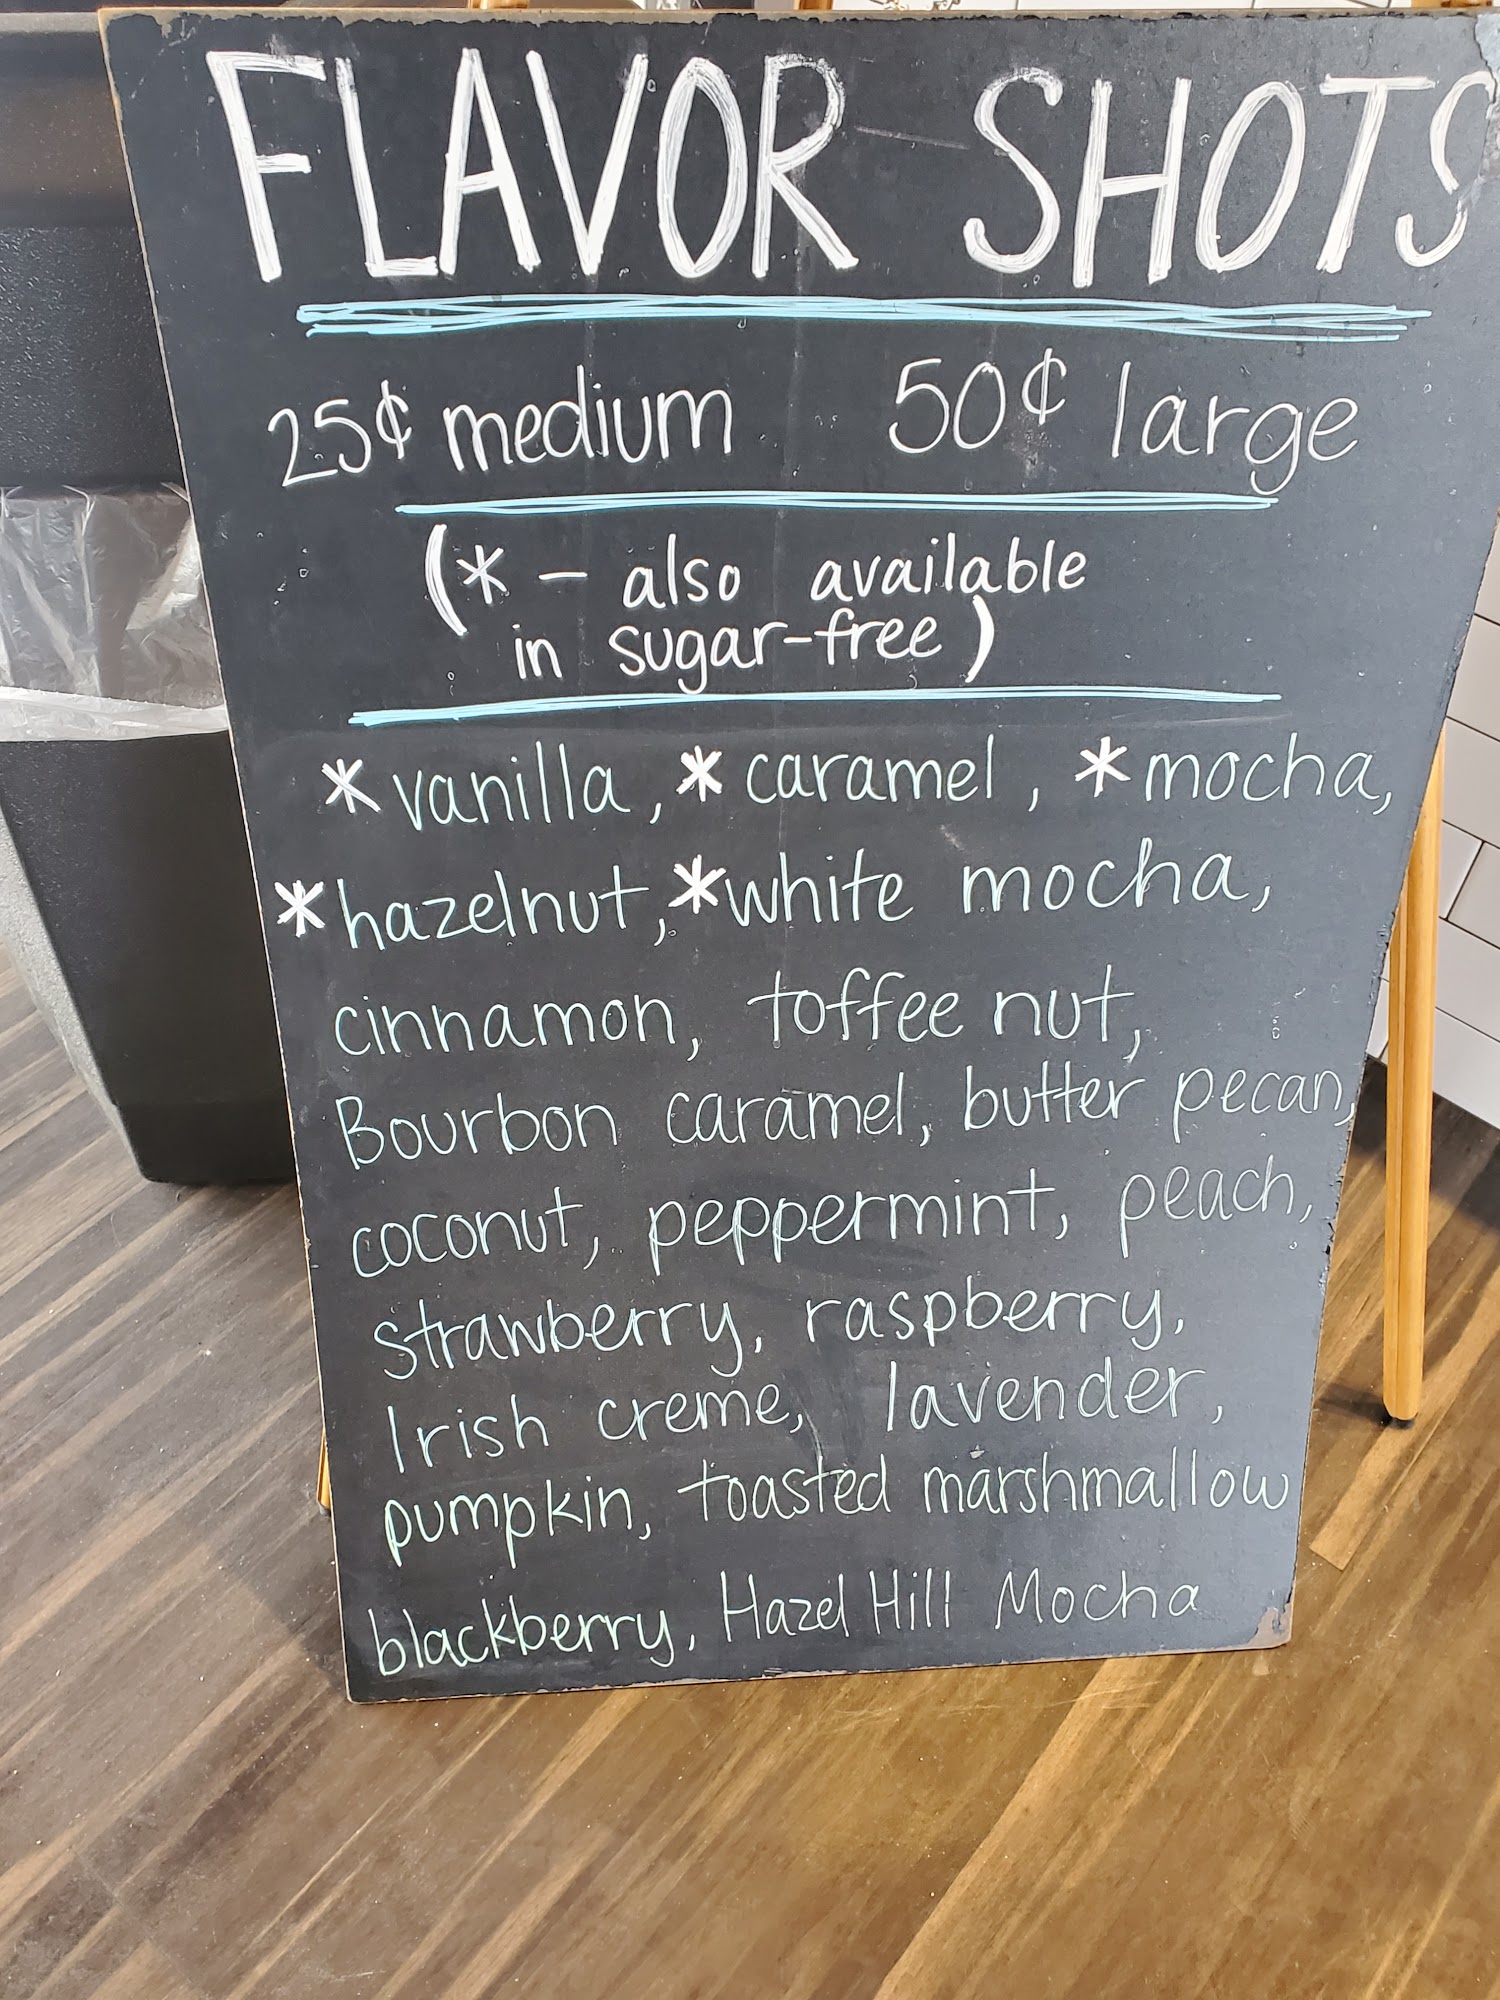 FLAVOR SHOTS
25¢ medium 50¢ large
(* - also available
in sugar-free)
*vanilla, *caramel, *mocha,
*hazelnut, *white mocha,
cinnamon, toffee nut,
Bourbon caramel, butter pecan,
coconut, peppermint, peach,
strawberry, raspberry,
Irish creme, lavender,
pumpkin, toasted marshmallow
blackberry, Hazel Hill Mocha